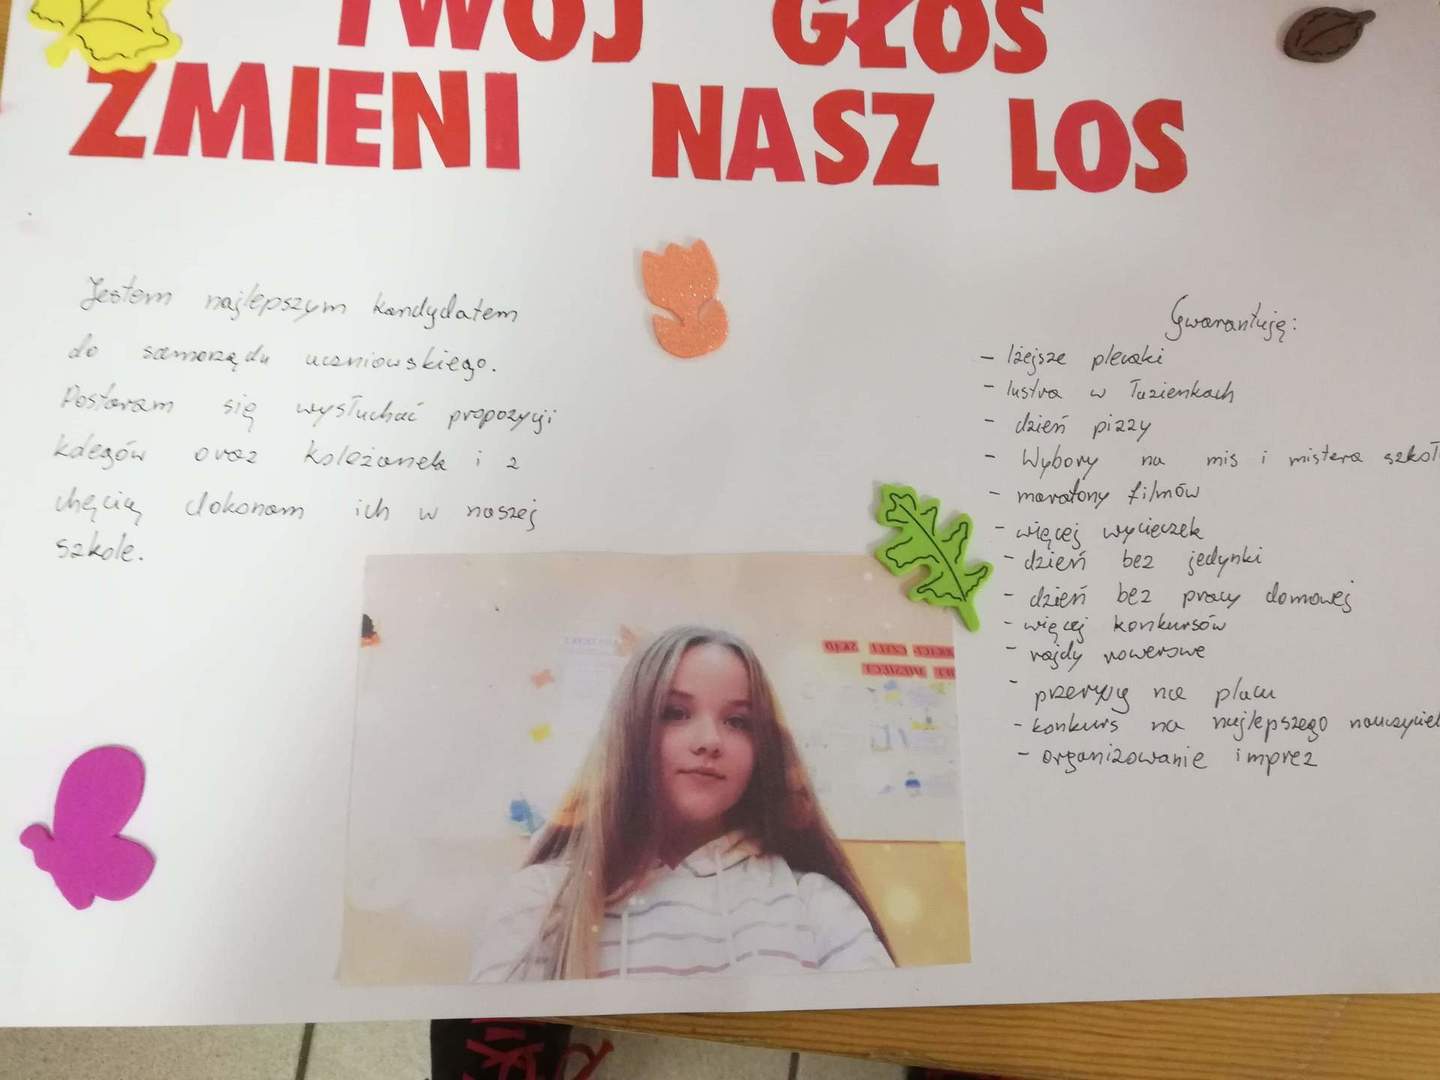 TWÓJ GŁOS
ZMIENI NASZ LOS
Jestem najlepszym kandydatem
do samorządu uczniowskiego.
Postaram się wysłuchać propozycji
kolegów oraz koleżanek i z
chęcią dokonam ich w naszej
szkole.
Gwarantuję:
- lżejsze plecaki
- lustra w łazienkach
- dzień pizzy
- Wybory na mis i mistera szkoł
- maratony filmów
- więcej wycieczek
- dzień bez jedynki
- dzień bez pracy domowej
- więcej konkursów
- rajdy rowerowe
- przerwy na placu
- konkurs na najlepszego nauczyciel
- organizowanie imprez